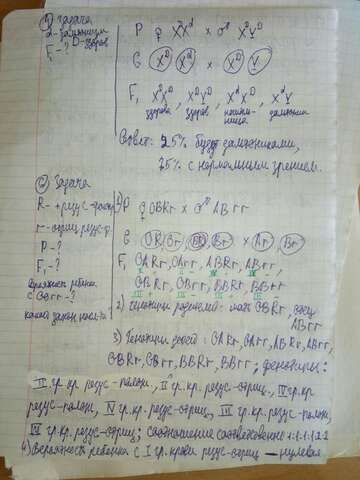 1) Задача
d - дальтонизм
D - здоров
F₁ - ?
P ♀ XᴰXᵈ × ♂ XᴰY
G Xᴰ Xᵈ Xᴰ Y
F₁ XᴰXᴰ, XᴰY, XᴰXᵈ, XᵈY
здорова здоров носительница дальтоник
Ответ: 25% будут дальтониками,
75% с нормальным зрением.
2) Задача
R - + резус-фактор
r - отриц. резус-ф.
P - ?
F₁ - ?
с OOrr - ?
какой закон
1) P ♀ OBRr × ♂ ABrr
G OR Or BR Br × Ar Br
F₁ OARr, OArr, ABRr, ABrr,
OBRr, OBrr, BBRr, BBrr
2) Генотипы родителей - мать OBRr, отец
ABrr
3) Генотипы детей: OARr, OArr, ABRr, ABrr,
OBRr, OBrr, BBRr, BBrr; фенотипы:
II гр. кр. резус-полож., II гр. кр. резус-отриц., IV гр. кр
резус-полож, IV гр. кр. резус-отриц., III гр. кр. резус-полож,
III гр. кр. резус-отриц; соотношение соответственно 1:1:1:1:2:2
4) Вероятность ребенка с I гр. крови резус-отриц — нулевая